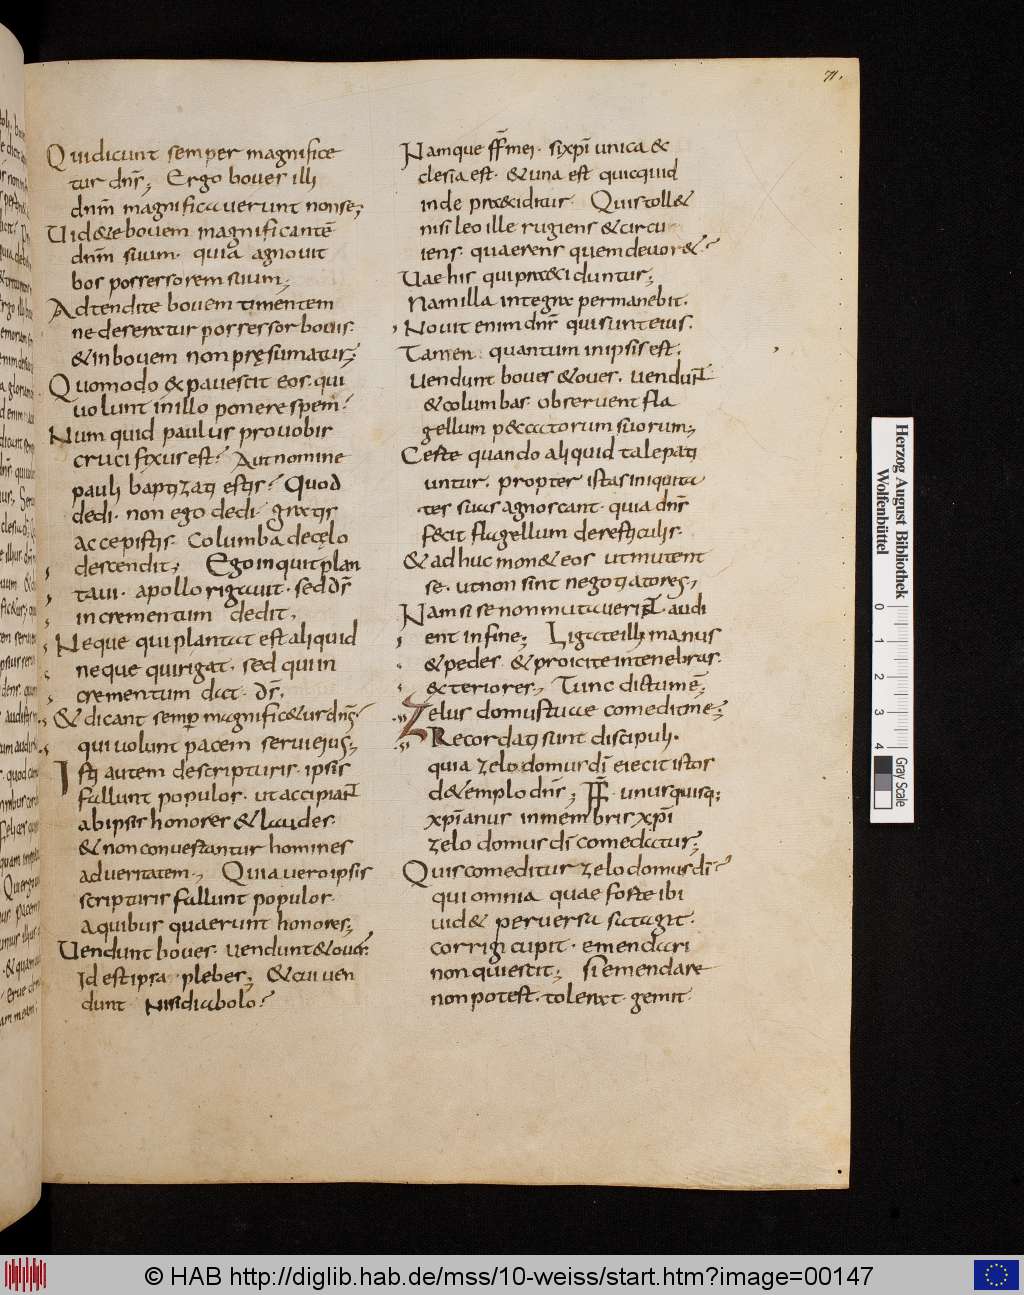 71.
Qui dicunt semper magnifice
tur dn̄s; Ergo boues illi
dnm̄ magnificauerunt non se;
Uidete bouem magnificantē
dnm̄ suum· quia agnouit
bos possessorem suum;
Adtendite bouem timentem
ne deseratur possessor bouis·
& in bouem non pręsumatur;
Quomodo expauescit eos· qui
uolunt in illo ponere spem?
Numquid paulus pro uobis
crucifixus est? Aut nomine
pauli baptizati estis? Quod
dedi· non ego dedi· gratis
accepistis· Columba de cęlo
descendit; Ego inquit plan
taui· apollo rigauit· sed ds̄
incrementum dedit,
Neque qui plantat est aliquid
neque qui rigat· sed qui in
crementum dat· ds̄,
& dicant semp̄ magnific&ur dn̄s·
qui uolunt pacem serui eius;
Isti autem de scripturis· ipsis
fallunt populos· ut accipiant
ab ipsis honores & laudes·
& non conuertantur homines
ad ueritatem; Quia uero ipsis
scripturis fallunt populos·
a quibus quaerunt honores;
Uendunt boues· uendunt & oues·
Id est ipsas plebes; & cui uen
dunt· Nisi diabolo?
Namque ff̄ mei· si xpī unica &c
clesia est· & una est quicquid
inde praeciditur· Quis toll&
nisi leo ille rugiens & circu
iens· quaerens quem deuor&?
Uae his qui praeciduntur;
Nam illa integra permanebit·
Nouit enim dn̄s qui sunt eius·
Tamen quantum in ipsis est·
uendunt boues & oues· uendunt
& columbas· obseruent fla
gellum peccatorum suorum;
Certe quando aliquid tale pati
untur· propter istas iniquita
tes suas agnoscant· quia dn̄s
fecit flagellum de resticulis·
& adhuc mon& eos ut mutent
se· ut non sint negotiatores;
Nam si se non mutauerint· audi
ent in fine; Ligate illi manus
& pedes· & proicite in tenebras·
&teriores; Tunc dictum ē;
Zelus domus tuae comedit me;
Recordati sunt discipuli·
quia zelo domus dī eiecit istos
de templo dn̄s; FF̄· unusquisq;
xpīanus in membris xpī
zelo domus dī comedatur;
Quis comeditur zelo domus dī?
qui omnia quae forte ibi
uid& peruersa satagit·
corrigi cupit· emendari
non quiescit; si emendare
non potest· tolerat· gemit·
Herzog August Bibliothek
Wolfenbüttel
0 1 2 3 4
Gray Scale
© HAB http://diglib.hab.de/mss/10-weiss/start.htm?image=00147